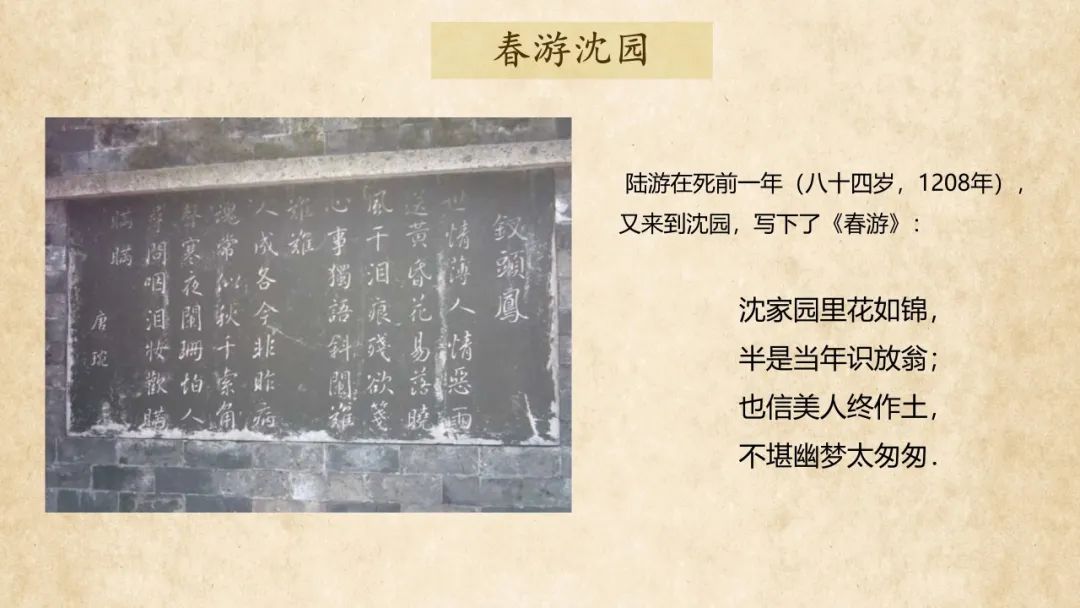 春游沈园
釵頭鳳
世情薄人情惡雨
送黃昏花易落曉
風干泪痕殘欲箋
心事獨語斜闌難
難難
人成各今非昨病
魂常似秋千索角
聲寒夜闌珊怕人
尋問咽泪妝歡瞞
瞞瞞
唐琬
陆游在死前一年（八十四岁，1208年），
又来到沈园，写下了《春游》：
沈家园里花如锦，
半是当年识放翁；
也信美人终作土，
不堪幽梦太匆匆．